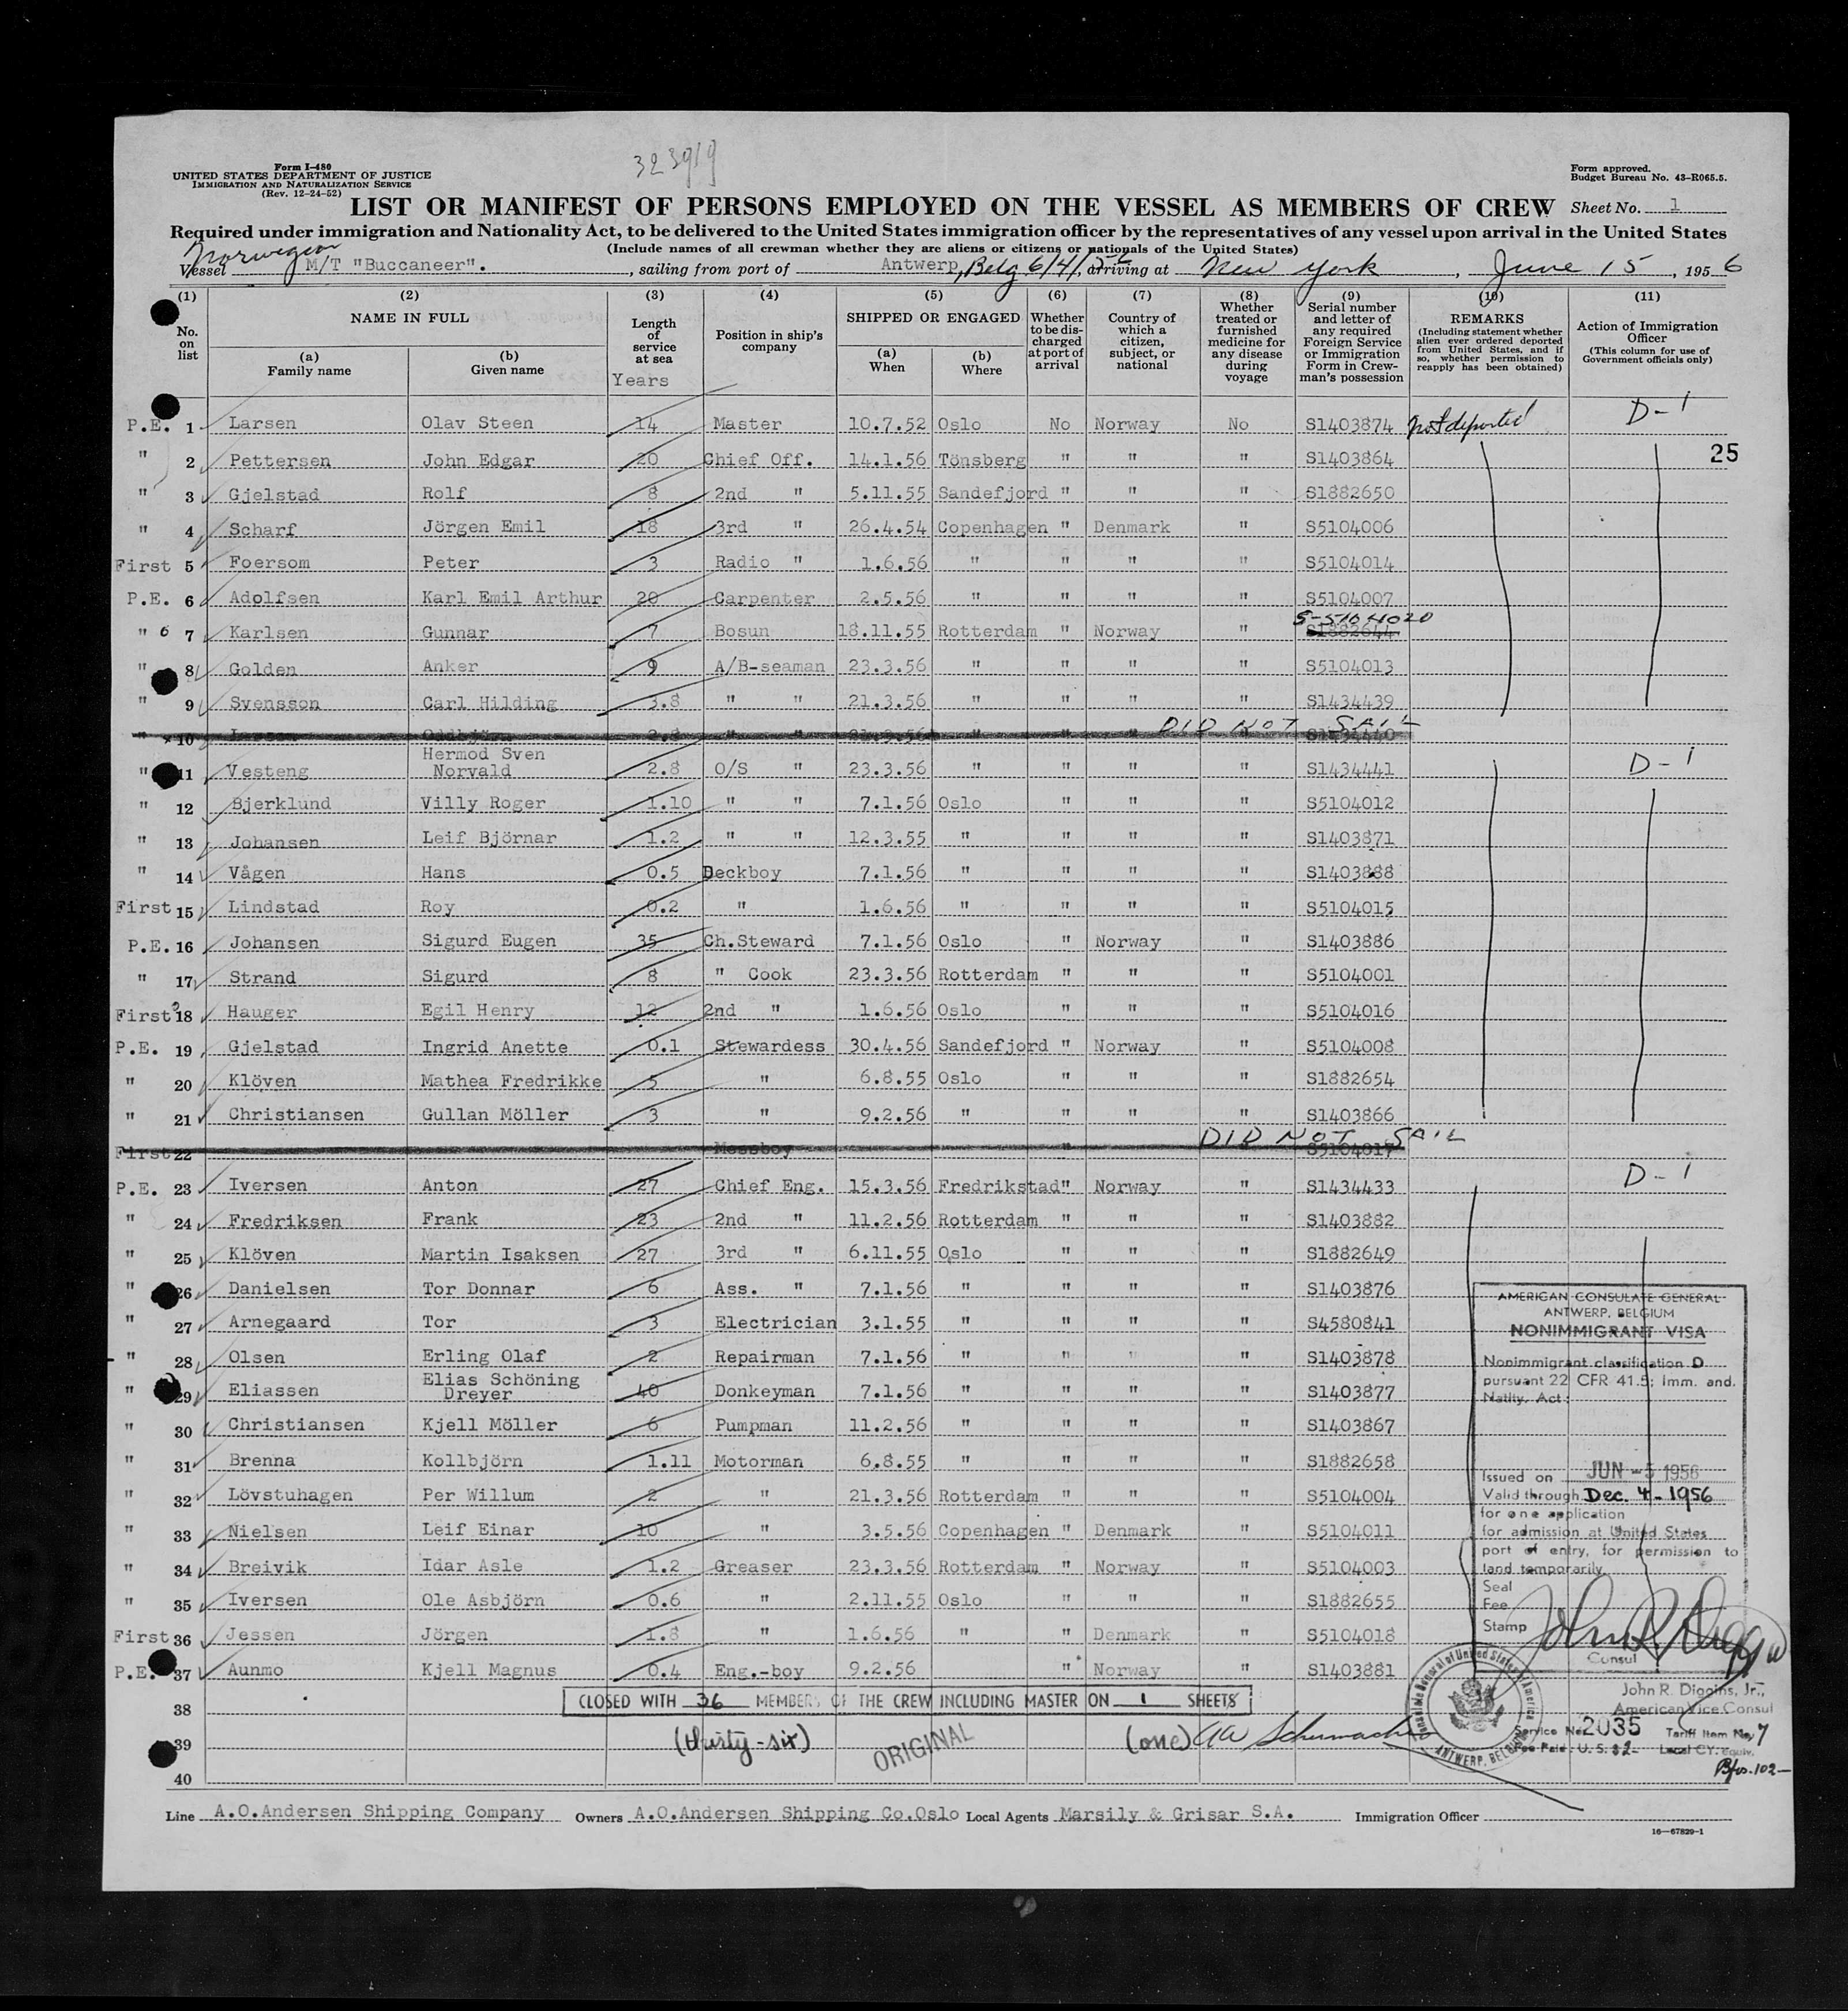 323919
Form I-480
UNITED STATES DEPARTMENT OF JUSTICE
IMMIGRATION AND NATURALIZATION SERVICE
(Rev. 12-24-52)
Form approved.
Budget Bureau No. 43-R065.5.
LIST OR MANIFEST OF PERSONS EMPLOYED ON THE VESSEL AS MEMBERS OF CREW Sheet No. 1
Required under immigration and Nationality Act, to be delivered to the United States immigration officer by the representatives of any vessel upon arrival in the United States
(Include names of all crewman whether they are aliens or citizens or nationals of the United States)
Norwegian
Vessel M/T "Buccaneer". , sailing from port of Antwerp, Belg 6/4/56, arriving at New York , June 15 , 1956
(1) (2) (3) (4) (5) (6) (7) (8) (9) (10) (11)
No. on list NAME IN FULL (a) Family name (b) Given name Length of service at sea Years Position in ship's company SHIPPED OR ENGAGED (a) When (b) Where Whether to be discharged at port of arrival Country of which a citizen, subject, or national Whether treated or furnished medicine for any disease during voyage Serial number and letter of any required Foreign Service or Immigration Form in Crewman's possession REMARKS (Including statement whether alien ever ordered deported from United States, and if so, whether permission to reapply has been obtained) Action of Immigration Officer (This column for use of Government officials only)
P.E. 1 Larsen Olav Steen 14 Master 10.7.52 Oslo No Norway No S1403874 Not deported D-1
" 2 Pettersen John Edgar 20 Chief Off. 14.1.56 Tönsberg " " " S1403864 25
" 3 Gjelstad Rolf 8 2nd " 5.11.55 Sandefjord " " " S1882650
" 4 Scharf Jörgen Emil 18 3rd " 26.4.54 Copenhagen " Denmark " S5104006
First 5 Foersom Peter 3 Radio " 1.6.56 " " " " S5104014
P.E. 6 Adolfsen Karl Emil Arthur 20 Carpenter 2.5.56 " " " " S5104007
" 6 7 Karlsen Gunnar 7 Bosun 18.11.55 Rotterdam " Norway " S1882644 S-5104020
" 8 Golden Anker 9 A/B-seaman 23.3.56 " " " " S5104013
" 9 Svensson Carl Hilding 3.8 " " 21.3.56 " " " " S1434439
" 10 Larsen Oddbjörn 2.8 " " 21.3.56 " " " " S1434440 DID NOT SAIL
" 11 Vesteng Hermod Sven Norvald 2.8 O/S " 23.3.56 " " " " S1434441 D-1
" 12 Bjerklund Villy Roger 1.10 " " 7.1.56 Oslo " " " S5104012
" 13 Johansen Leif Björnar 1.2 " " 12.3.55 " " " " S1403871
" 14 Vågen Hans 0.5 Deckboy 7.1.56 " " " " S1403888
First 15 Lindstad Roy 0.2 " 1.6.56 " " " " S5104015
P.E. 16 Johansen Sigurd Eugen 35 Ch.Steward 7.1.56 Oslo " Norway " S1403886
" 17 Strand Sigurd 8 " Cook 23.3.56 Rotterdam " " " S5104001
First 18 Hauger Egil Henry 12 2nd " 1.6.56 Oslo " " " S5104016
P.E. 19 Gjelstad Ingrid Anette 0.1 Stewardess 30.4.56 Sandefjord " Norway " S5104008
" 20 Klöven Mathea Fredrikke 5 " 6.8.55 Oslo " " " S1882654
" 21 Christiansen Gullan Möller 3 " 9.2.56 " " " " S1403866
First 22 Messboy " S5104017 DID NOT SAIL
P.E. 23 Iversen Anton 27 Chief Eng. 15.3.56 Fredrikstad " Norway " S1434433 D-1
" 24 Fredriksen Frank 23 2nd " 11.2.56 Rotterdam " " " S1403882
" 25 Klöven Martin Isaksen 27 3rd " 6.11.55 Oslo " " " S1882649
" 26 Danielsen Tor Donnar 6 Ass. " 7.1.56 " " " " S1403876
" 27 Arnegaard Tor 3 Electrician 3.1.55 " " " " S4580841
" 28 Olsen Erling Olaf 2 Repairman 7.1.56 " " " " S1403878
" 29 Eliassen Elias Schöning Dreyer 40 Donkeyman 7.1.56 " " " " S1403877
" 30 Christiansen Kjell Möller 6 Pumpman 11.2.56 " " " " S1403867
" 31 Brenna Kollbjörn 1.11 Motorman 6.8.55 " " " " S1882658
" 32 Lövstuhagen Per Willum 2 " 21.3.56 Rotterdam " " " S5104004
" 33 Nielsen Leif Einar 10 " 3.5.56 Copenhagen " Denmark " S5104011
" 34 Breivik Idar Asle 1.2 Greaser 23.3.56 Rotterdam " Norway " S5104003
" 35 Iversen Ole Asbjörn 0.6 " 2.11.55 Oslo " " " S1882655
First 36 Jessen Jörgen 1.8 " 1.6.56 " " Denmark " S5104018
P.E. 37 Aunmo Kjell Magnus 0.4 Eng.-boy 9.2.56 " Norway " S1403881
38
39
40
CLOSED WITH 36 MEMBERS OF THE CREW INCLUDING MASTER ON 1 SHEETS
(thirty-six) ORIGINAL (one) AW Schumach
AMERICAN CONSULATE GENERAL
ANTWERP, BELGIUM
NONIMMIGRANT VISA
Nonimmigrant classification D
pursuant 22 CFR 41.5; Imm. and.
Natlty. Act:
Issued on JUN -5 1956
Valid through Dec. 4 - 1956
for one application
for admission at United States
port of entry, for permission to
land temporarily
Seal
Fee
Stamp John R. Diggins
Consul
John R. Diggins, Jr.,
American Vice Consul
Service No. 2035 Tariff Item No. 7
Fee Paid: U.S. $2- Local CY. Equiv.
Bfrs. 102-
ANTWERP, BELGIUM
Line A.O.Andersen Shipping Company Owners A.O.Andersen Shipping Co.Oslo Local Agents Marsily & Grisar S.A. Immigration Officer
16-67829-1